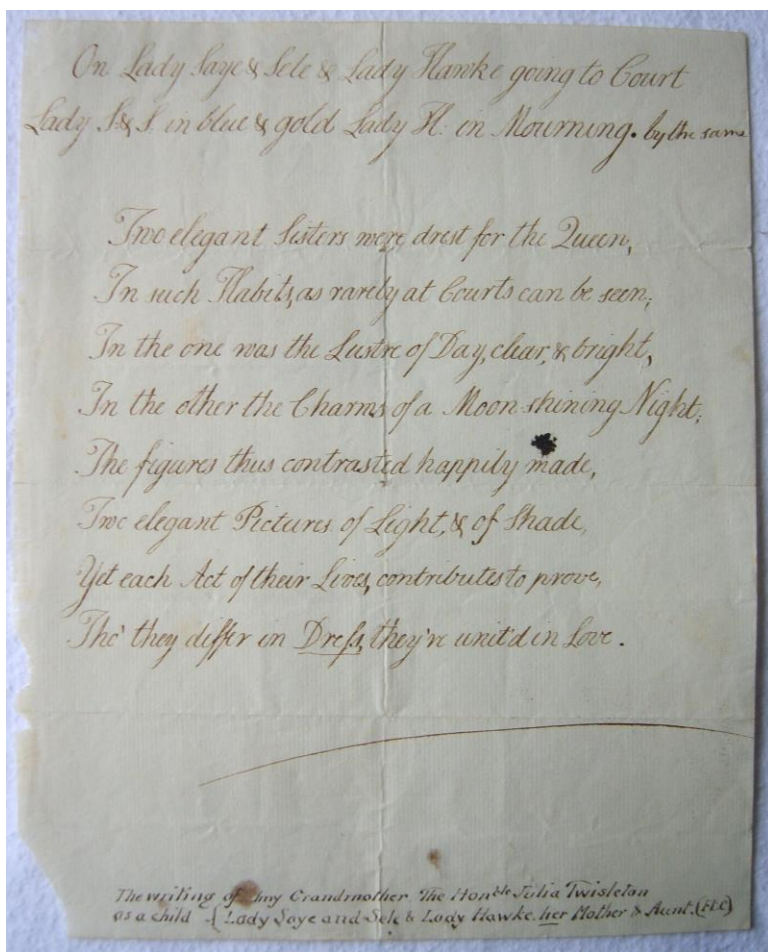 On Lady Saye & Sele & Lady Hawke going to Court
Lady S: & S: in blue & gold Lady H: in Mourning. by the same
Two elegant Sisters were drest for the Queen,
In such Habits, as rarely at Courts can be seen;
In the one was the Lustre of Day, clear, & bright,
In the other the Charms of a Moon shining Night;
The figures thus contrasted happily made,
Two elegant Pictures of Light, & of Shade,
Yet each Act of their Lives, contributes to prove,
Tho' they differ in Dreſs, they're unit'd in Love.
The writing of my Grandmother The Honble Julia Twisleton
as a child - (Lady Saye and Sele & Lady Hawke her Mother & Aunt. (H.C)